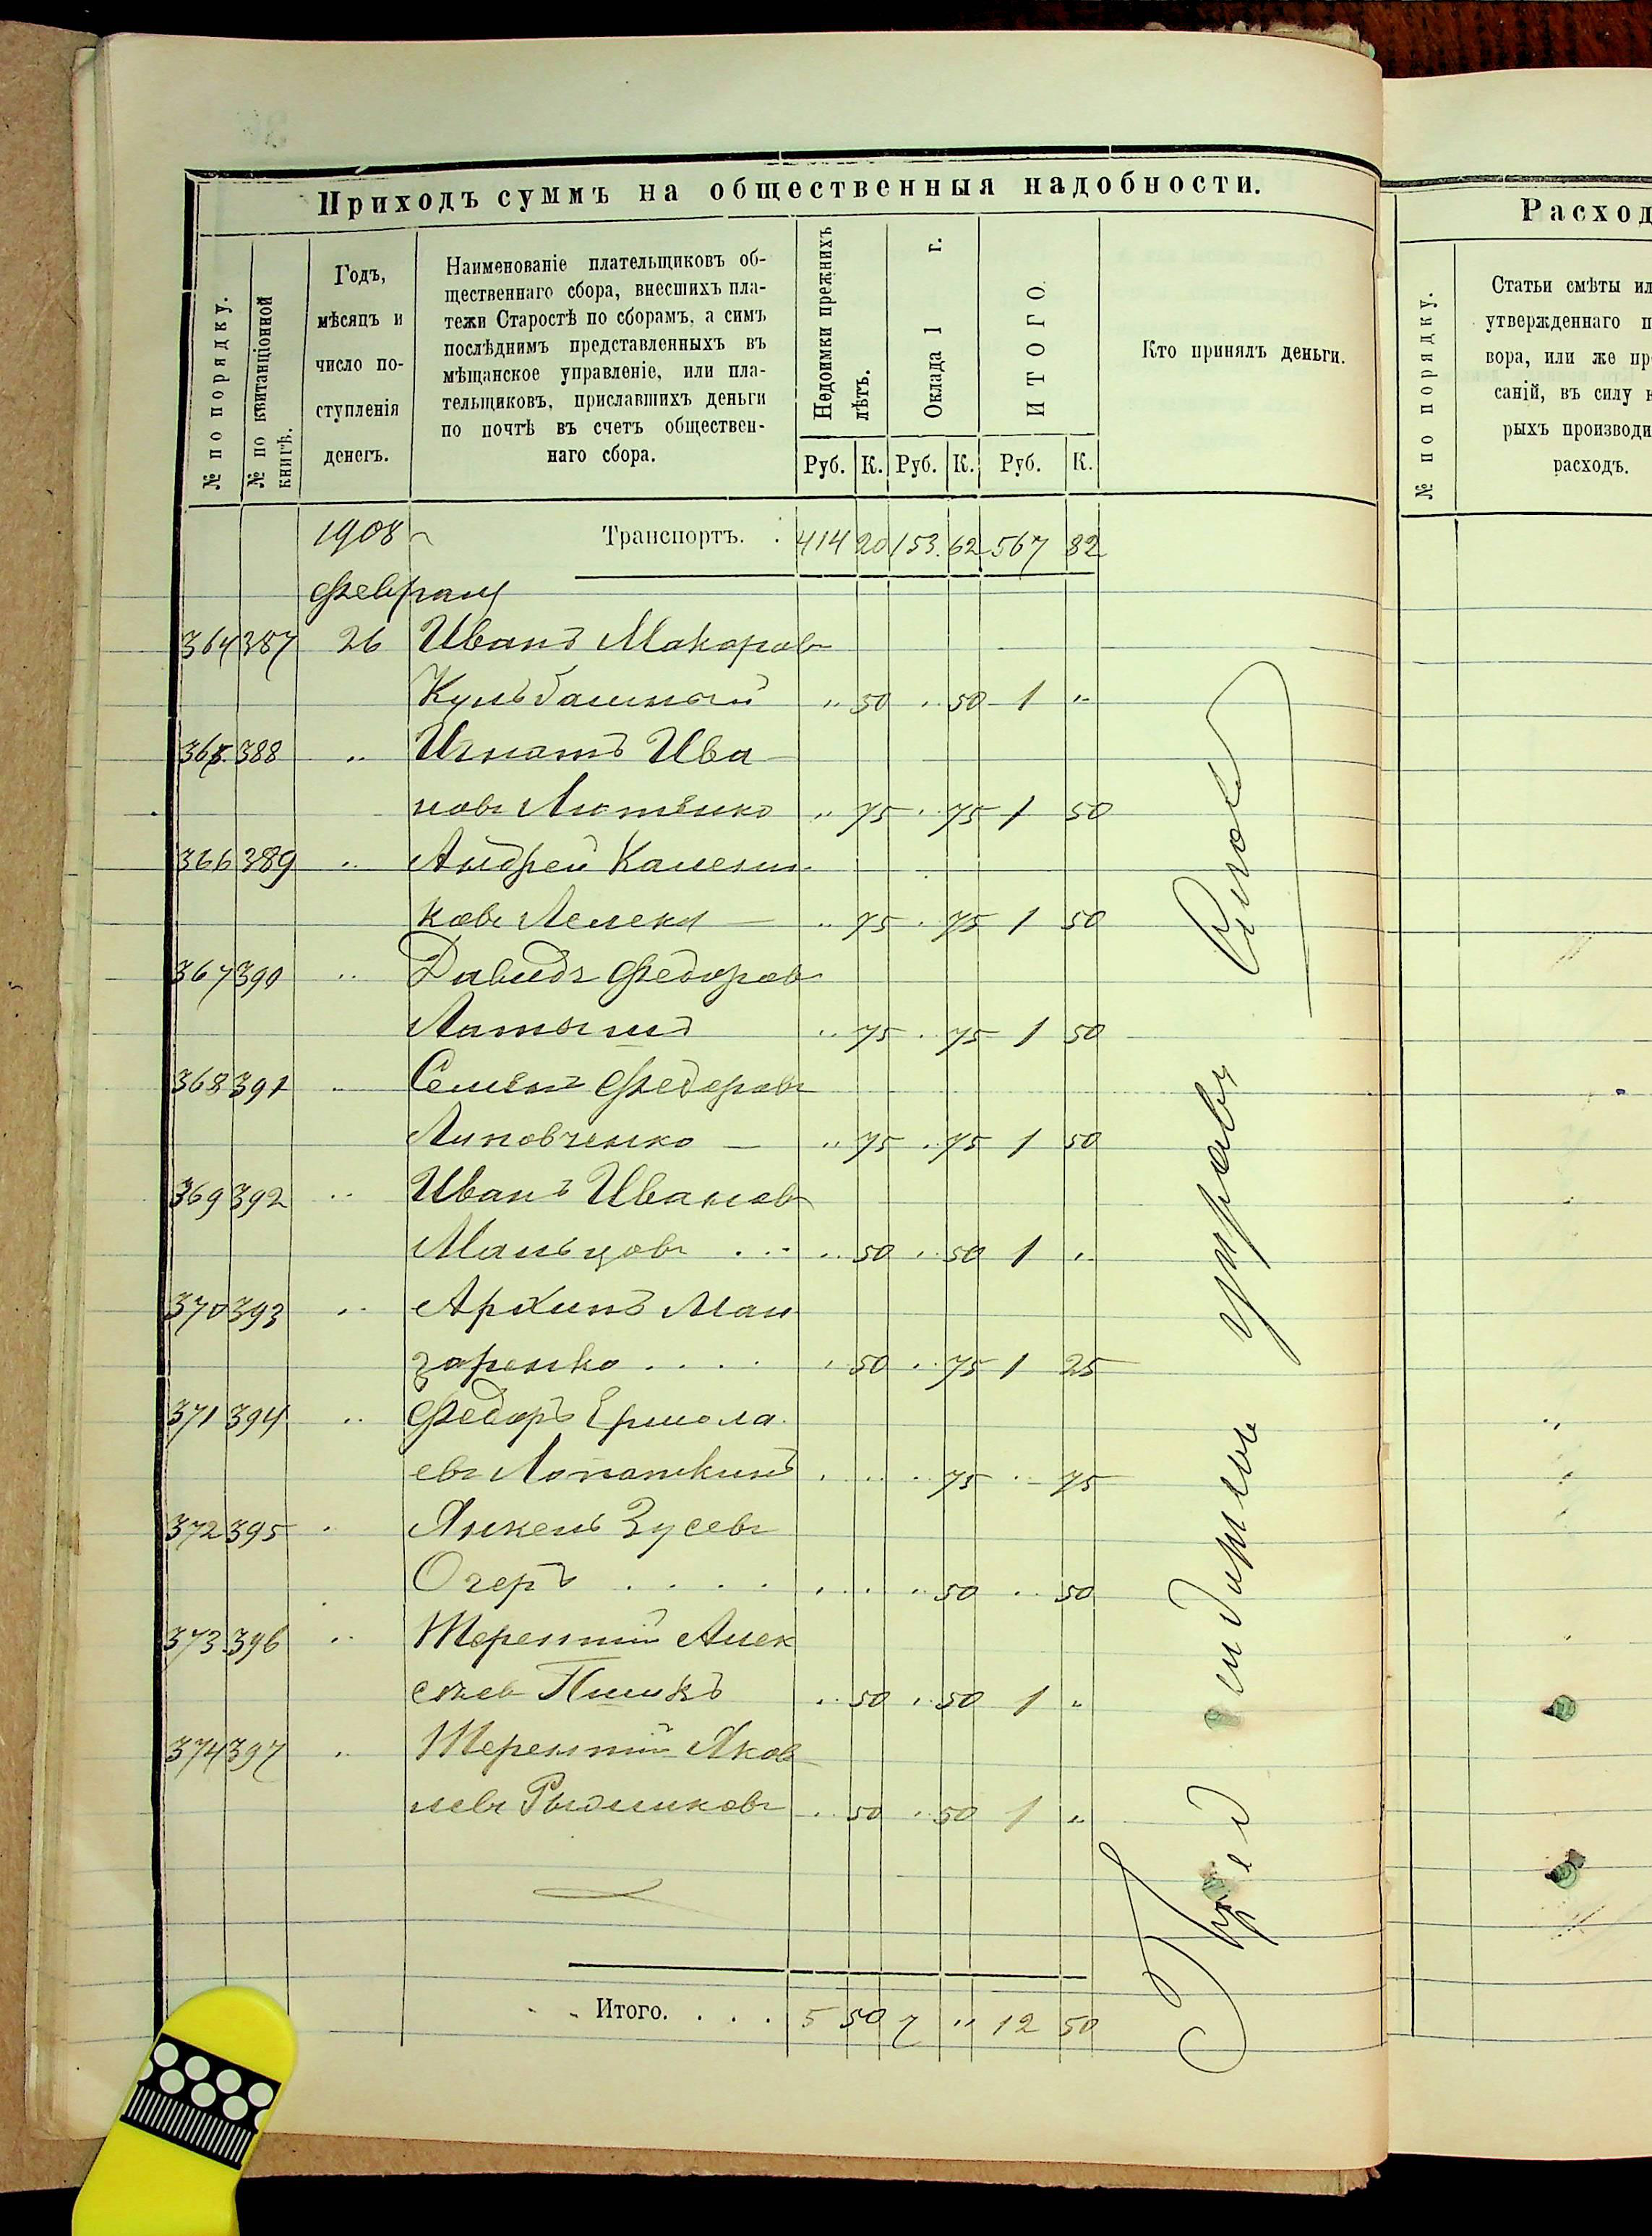 Приходъ суммъ на общественныя надобности.
№ по порядку.
№ по квитанціонной
книгѣ.
Годъ,
мѣсяцъ и
число по-
ступленія
денегъ.
Наименованіе плательщиковъ об-
щественнаго сбора, внесшихъ пла-
тежи Старостѣ по сборамъ, а симъ
послѣднимъ представленныхъ въ
мѣщанское управленіе, или пла-
тельщиковъ, приславшихъ деньги
по почтѣ въ счетъ обществен-
наго сбора.
Недоимки прежнихъ
лѣтъ.
Оклада 1 г.
ИТОГО.
Руб. К. Руб. К. Руб. К.
Кто принялъ деньги.
1908 Транспортъ. . 414 20 153. 62 567 82
Февраля
364 387 26 Иванъ Макаровъ
Кульбашный „ 50 „ 50 1 „
365 388 „ Игнатъ Ива
новъ Литвенко „ 75 „ 75 1 50
366 389 „ Андрей
ковъ „ 75 „ 75 1 50
367 390 „ Давидъ Федоровъ
Латышъ „ 75 „ 75 1 50
368 391 „ Семенъ Федоровъ
Липовченко — „ 75 „ 75 1 50
369 392 „ Иванъ Ивановъ
Мальцовъ . . . „ 50 „ 50 1 „
370 393 „ Архипъ Ман
заренко . . . . „ 50 „ 75 1 25
371 394 „ Федоръ Ермола
евъ Лопаткинъ . . . „ 75 „ 75
372 395 „ Янкель Зусевъ
Очеръ . . . . . . . „ 50 . 50
373 396 „ Терентій Алек
сѣев „ 50 „ 50 1 „
374 397 „ Терентій Яков
левъ „ 50 „ 50 1 „
Итого. . . . 5 50 7 „ 12 50
Расход
№ по порядку.
Статьи смѣты ил
утвержденнаго п
вора, или же пр
саній, въ силу к
рыхъ производи
расходъ.